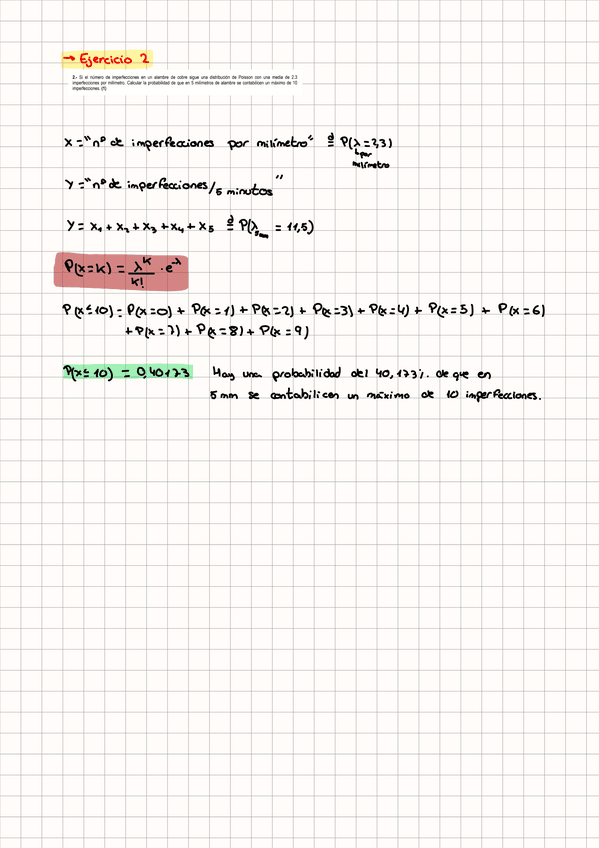 → Ejercicio 2
2.- Si el número de imperfecciones en un alambre de cobre sigue una distribución de Poisson con una media de 2.3
imperfecciones por milímetro. Calcular la probabilidad de que en 5 milímetros de alambre se contabilicen un máximo de 10
imperfecciones. (f5)
X = "nº de imperfecciones por milímetro" ≝ P(λ = 2,3)
↳ por
milímetro
Y = "nº de imperfecciones/5 minutos"
Y = X₁ + X₂ + X₃ + X₄ + X₅ ≝ P(λ₅ₘₘ = 11,5)
P(X=K) = λ^K / K! · e^-λ
P(X≤10) = P(X=0) + P(X=1) + P(X=2) + P(X=3) + P(X=4) + P(X=5) + P(X=6)
+ P(X=7) + P(X=8) + P(X=9)
P(X≤10) = 0,40173 Hay una probabilidad del 40,173% de que en
5 mm se contabilicen un máximo de 10 imperfecciones.